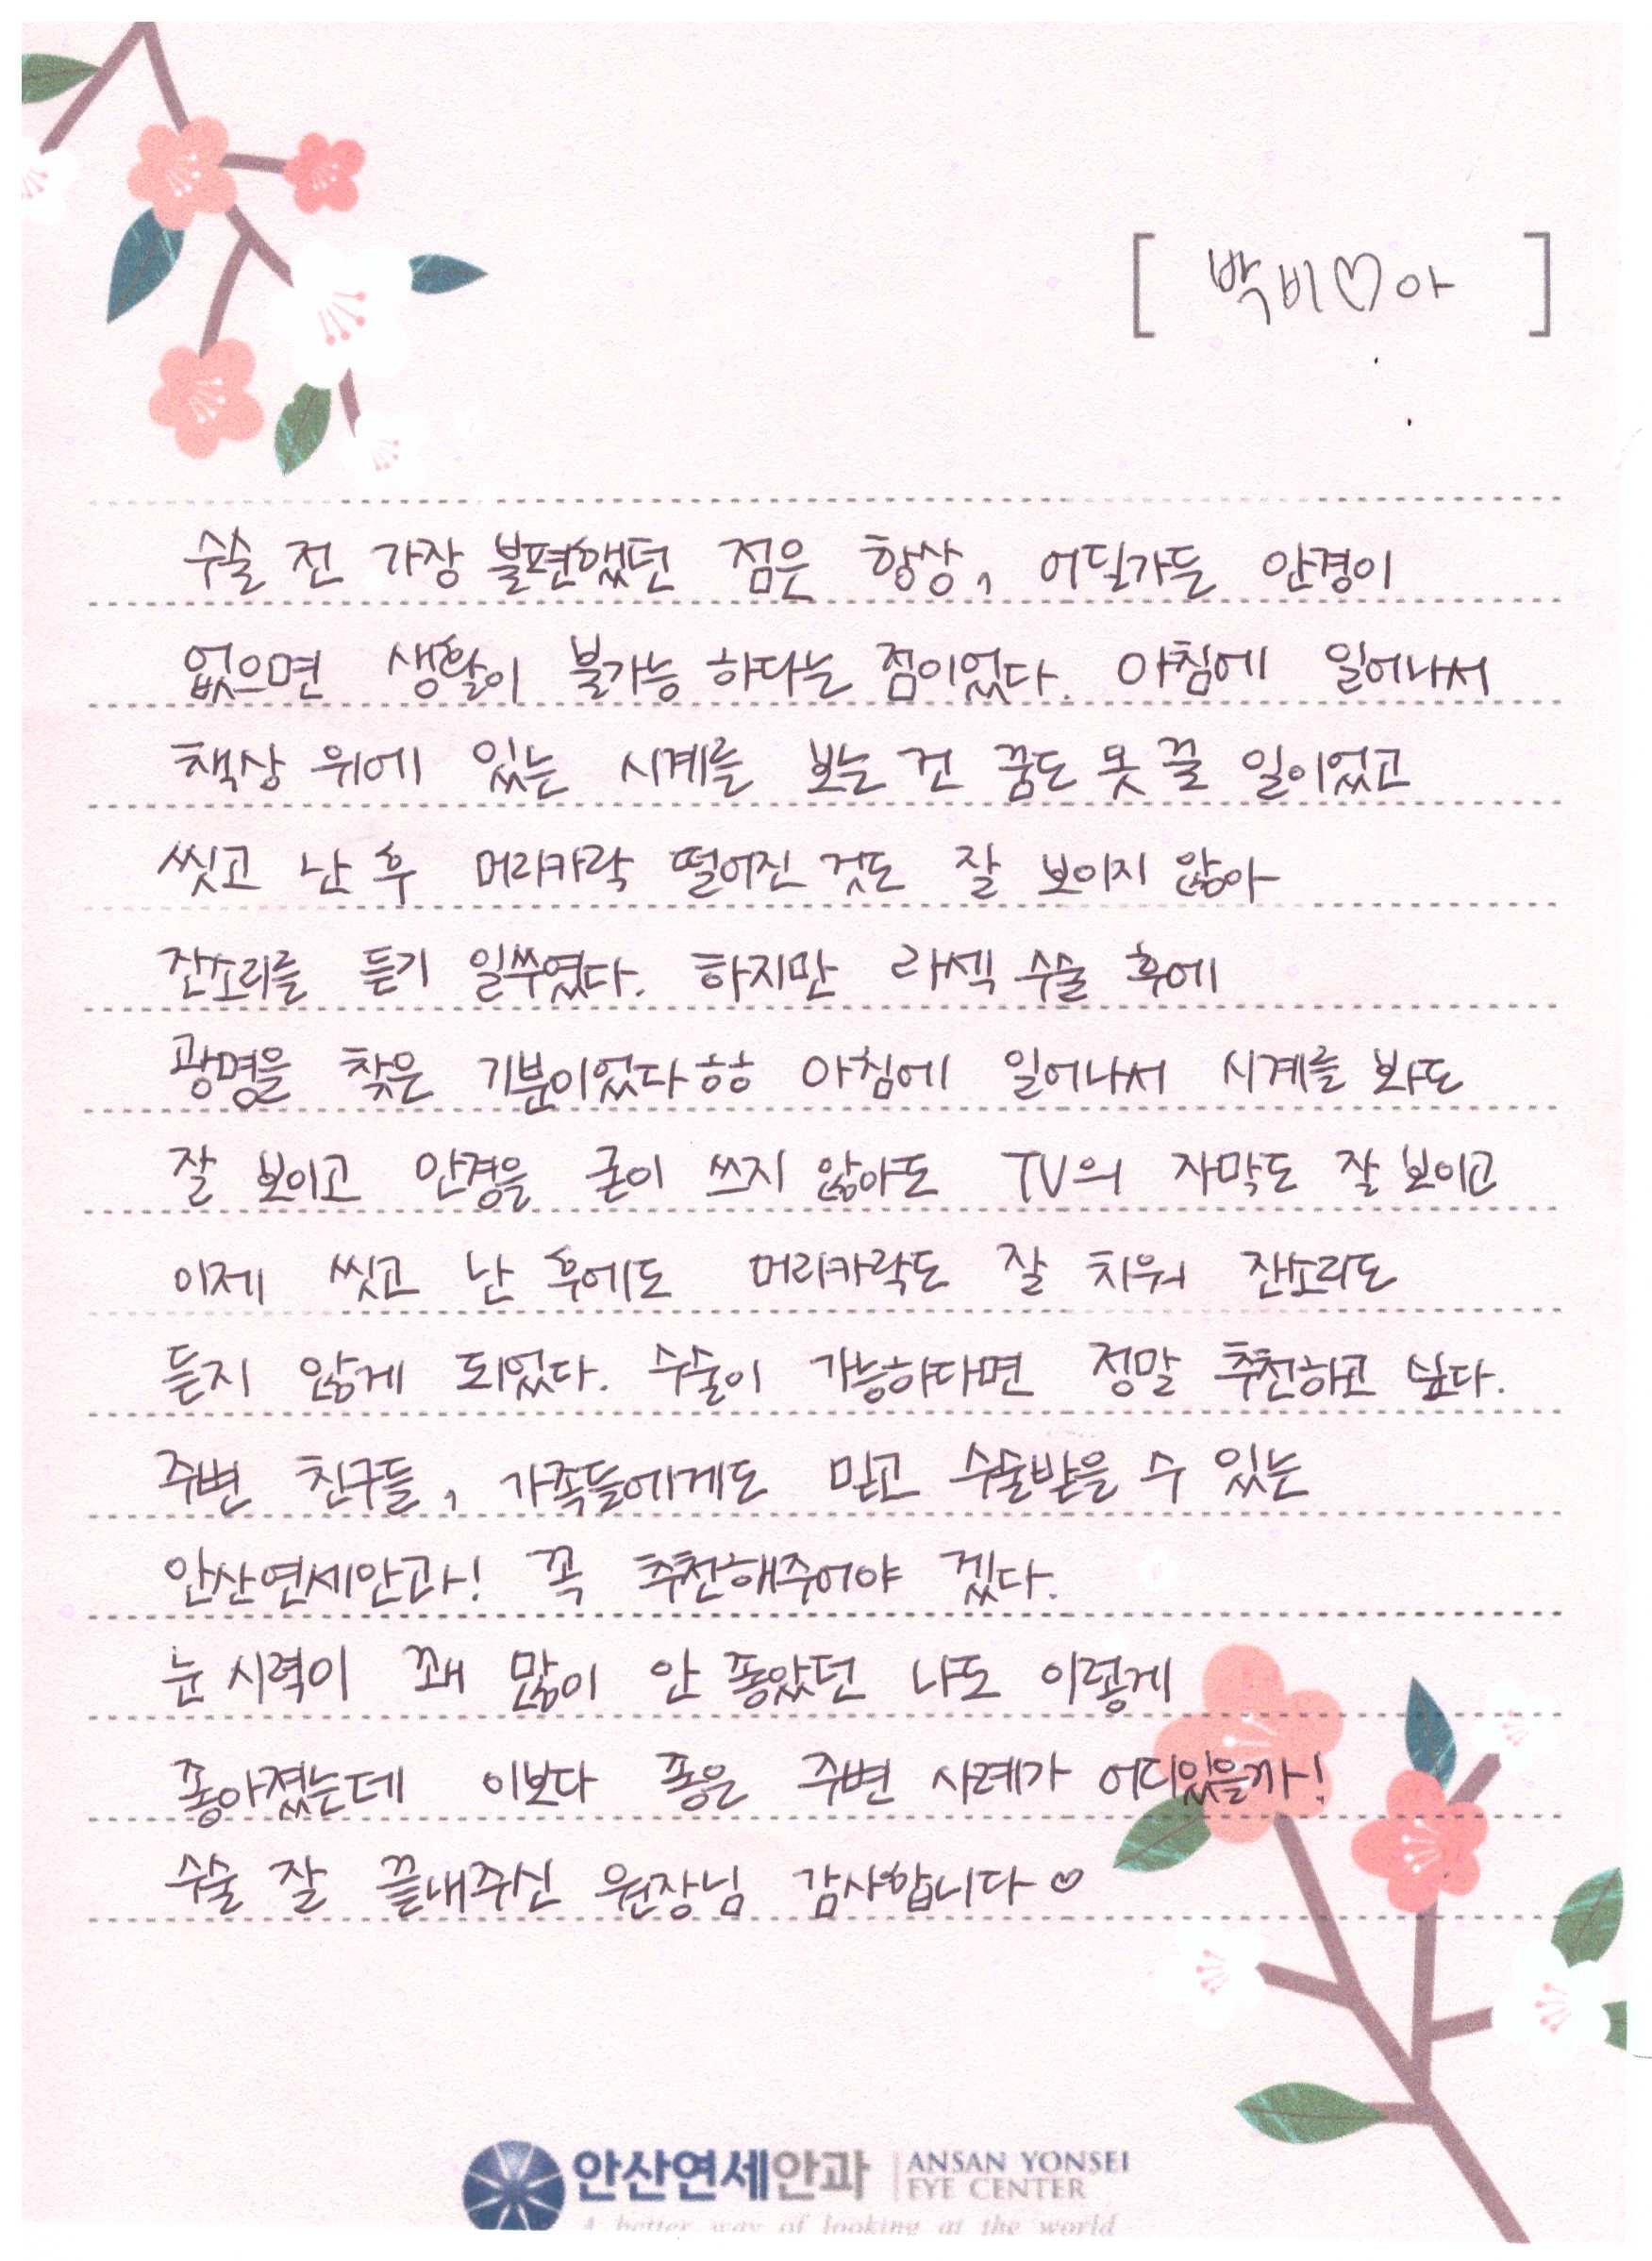 [ 박비♡아 ]
수술 전 가장 불편했던 점은 항상, 어딜가든 안경이
없으면 생활이 불가능 하다는 점이었다. 아침에 일어나서
책상 위에 있는 시계를 보는 건 꿈도 못 꿀 일이었고
씻고 난 후 머리카락 떨어진 것도 잘 보이지 않아
잔소리를 듣기 일쑤였다. 하지만 라섹 수술 후에
광명을 찾은 기분이었다ㅎㅎ 아침에 일어나서 시계를 봐도
잘 보이고 안경을 굳이 쓰지 않아도 TV의 자막도 잘 보이고
이제 씻고 난 후에도 머리카락도 잘 치워 잔소리도
듣지 않게 되었다. 수술이 가능하다면 정말 추천하고 싶다.
주변 친구들, 가족들에게도 믿고 수술받을 수 있는
안산연세안과! 꼭 추천해주어야 겠다.
눈 시력이 꽤 많이 안 좋았던 나도 이렇게
좋아졌는데 이보다 좋은 주변 사례가 어디있을까!
수술 잘 끝내주신 원장님 감사합니다♡
안산연세안과 ANSAN YONSEI
EYE CENTER
A better way of looking at the world